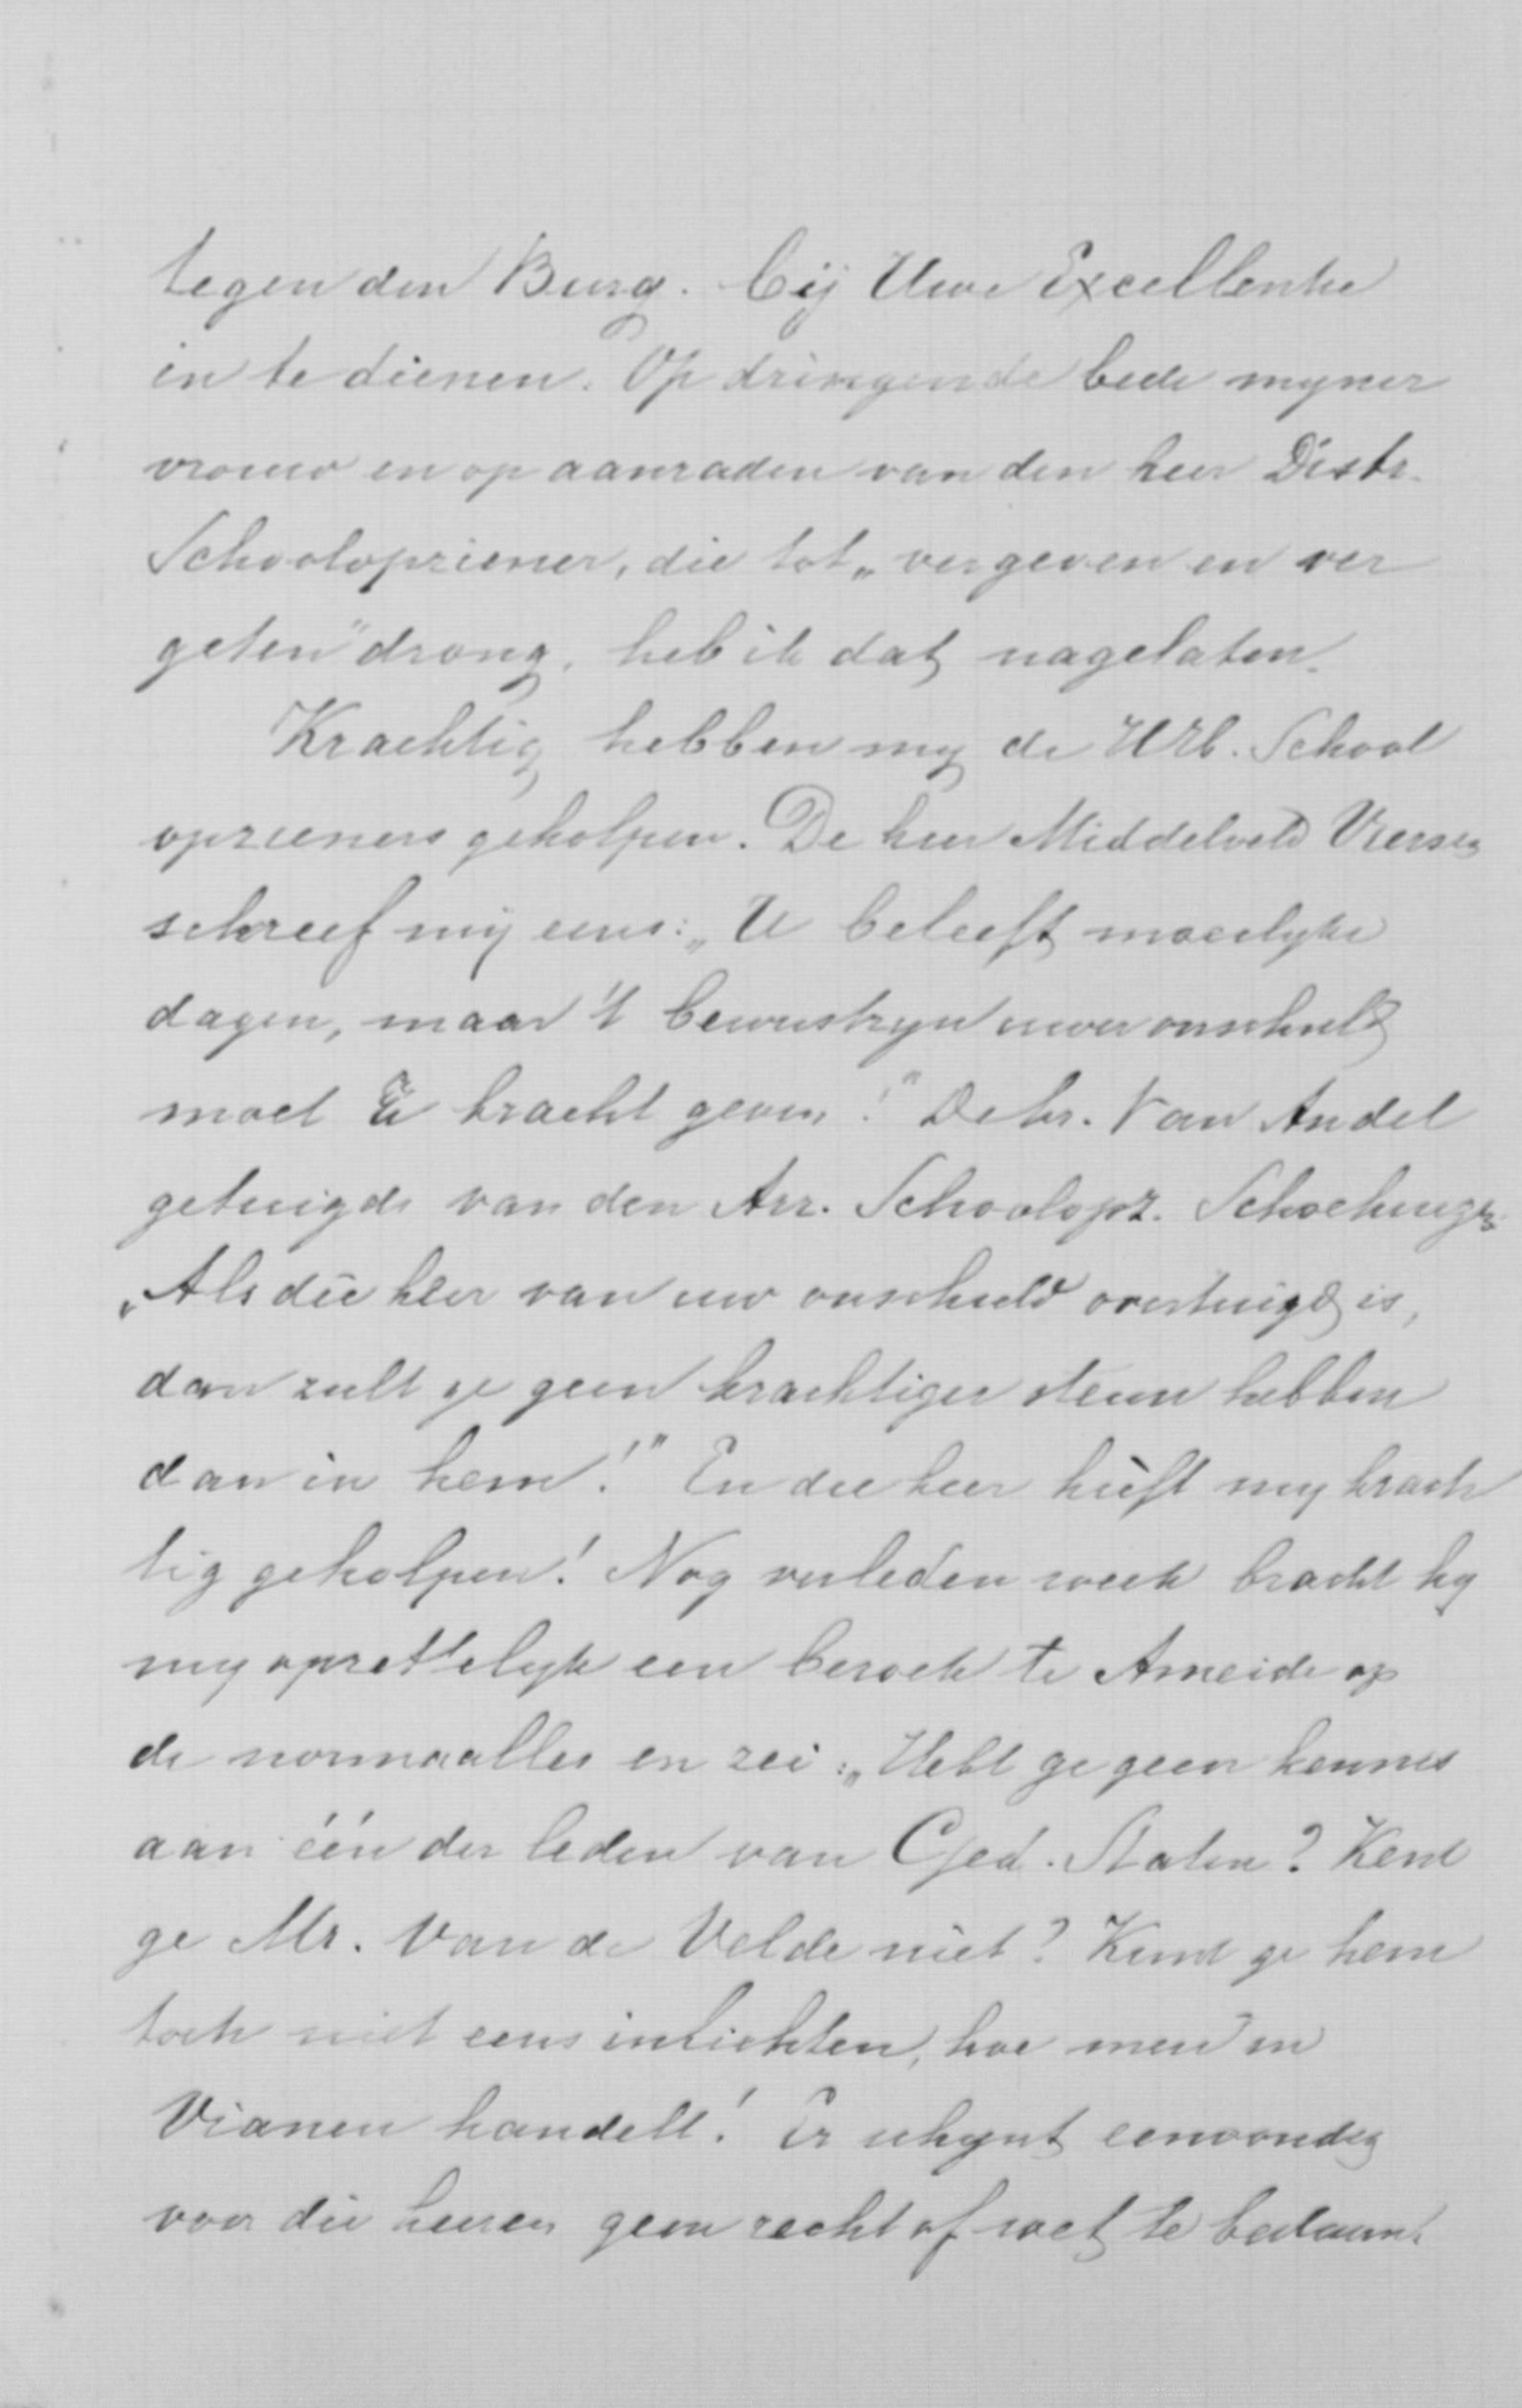 tegen den Burg. bij Uwe Excellentie
in te dienen. Op dringende bede mijner
vrouw en op aanraden van den heer Distr.
Schoolopziener, die tot „vergeven en ver
geten" drong, heb ik dat nagelaten.
Krachtig hebben mij de WEd. School
opzieners geholpen. De heer Middelveld Viersen
schreef mij eens: „U beleeft moeielijke
dagen, maar 't bewustzijn uwer onschuld
moet U kracht geven!" De hr. Van Andel
getuigde van den Arr. Schoolopz.
„Als die heer van uw onschuld overtuigd is,
dan zult ge geen krachtiger steun hebben
dan in hem!" En die heer hééft mij krach
tig geholpen! Nog verleden week bracht hij
mij opzettelijk een bezoek te Ameide op
de normaalles en zei: „Hebt ge geen kennis
aan één der leden van Ged. Staten? Kent
ge Mr. Van de Velde niet? Kunt ge hem
toch niet eens inlichten, hoe men in
Vianen handelt! Er schijnt eenvoudig
voor die heeren geen recht of wet te bestaan!